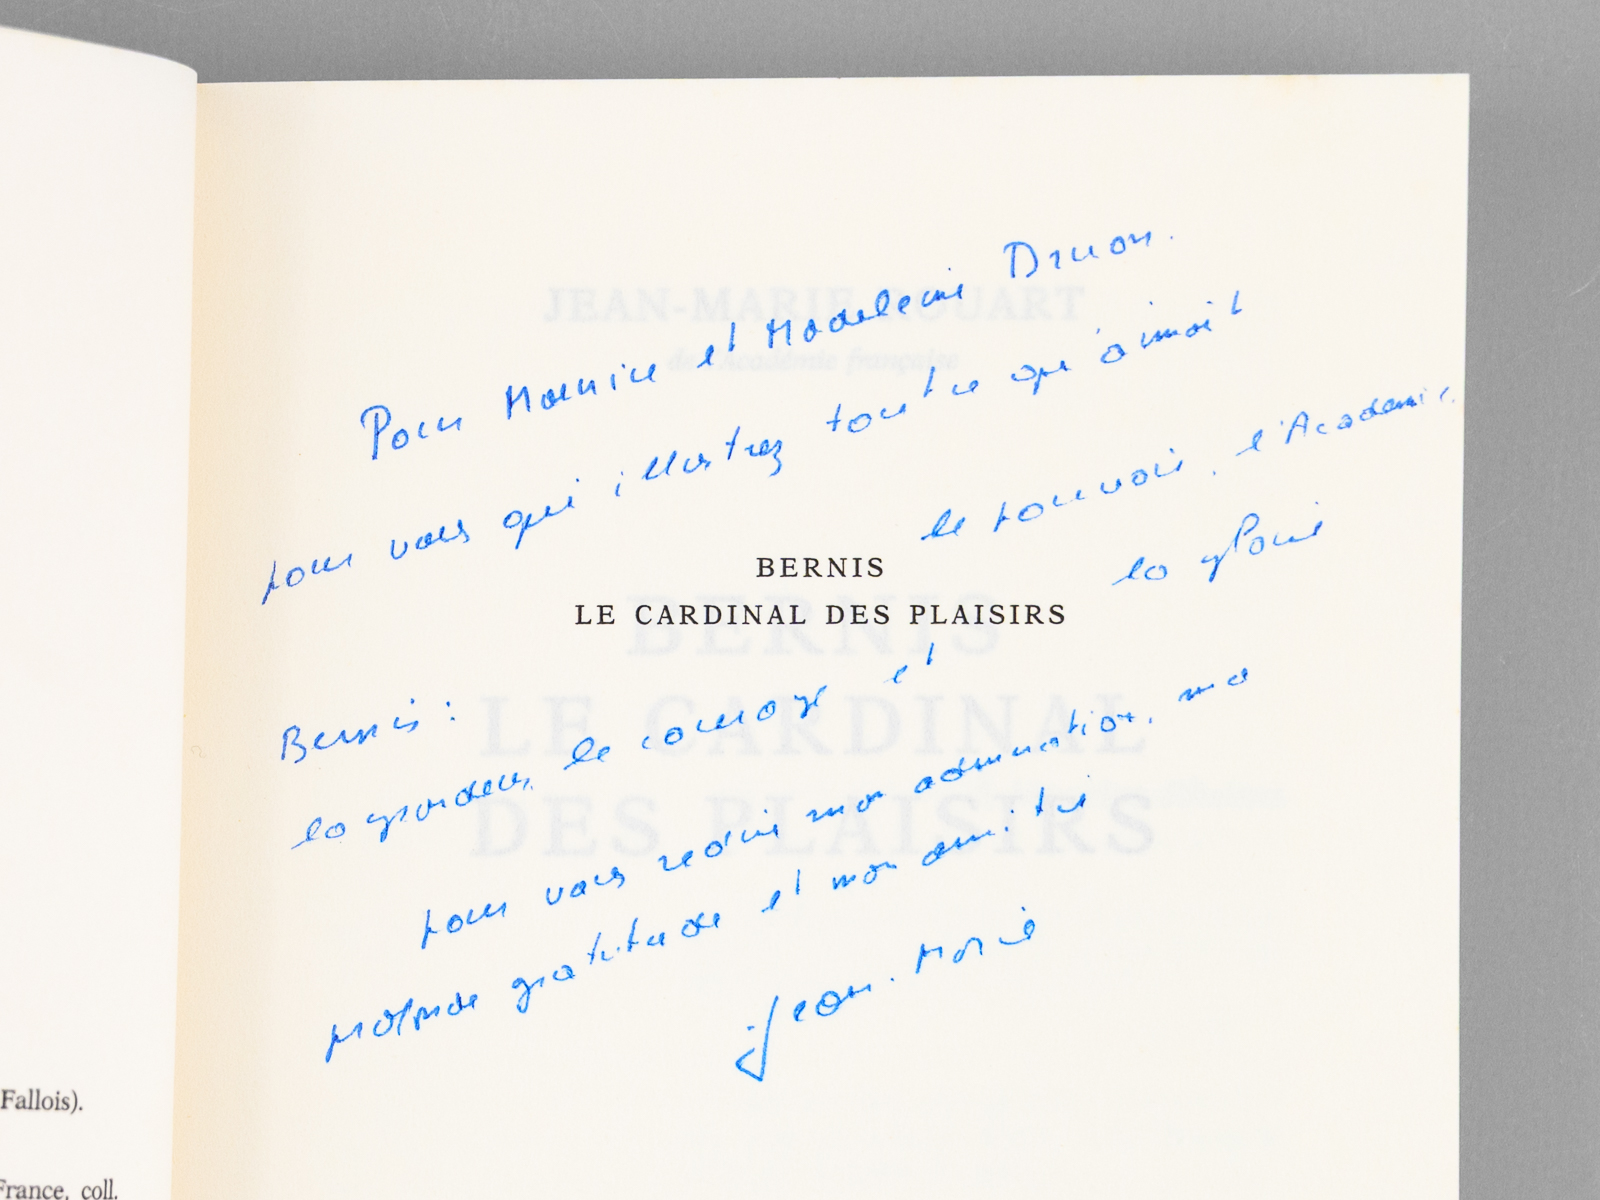 Pour Maurice et Madeleine Druon.
pour vous qui illustrez tout ce qu'aimait
Bernis : le pouvoir, l'Académie,
la gloire
BERNIS
LE CARDINAL DES PLAISIRS
la grandeur, le courage et
pour vous redire mon admiration, ma
profonde gratitude et mon amitié
Jean-Marie
JEAN-MARIE ROUART
de l'Académie française
BERNIS
LE CARDINAL
DES PLAISIRS
Fallois).
France, coll.